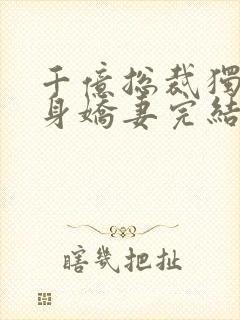 千億總裁獨
身嬌妻完結
瞎幾把扯